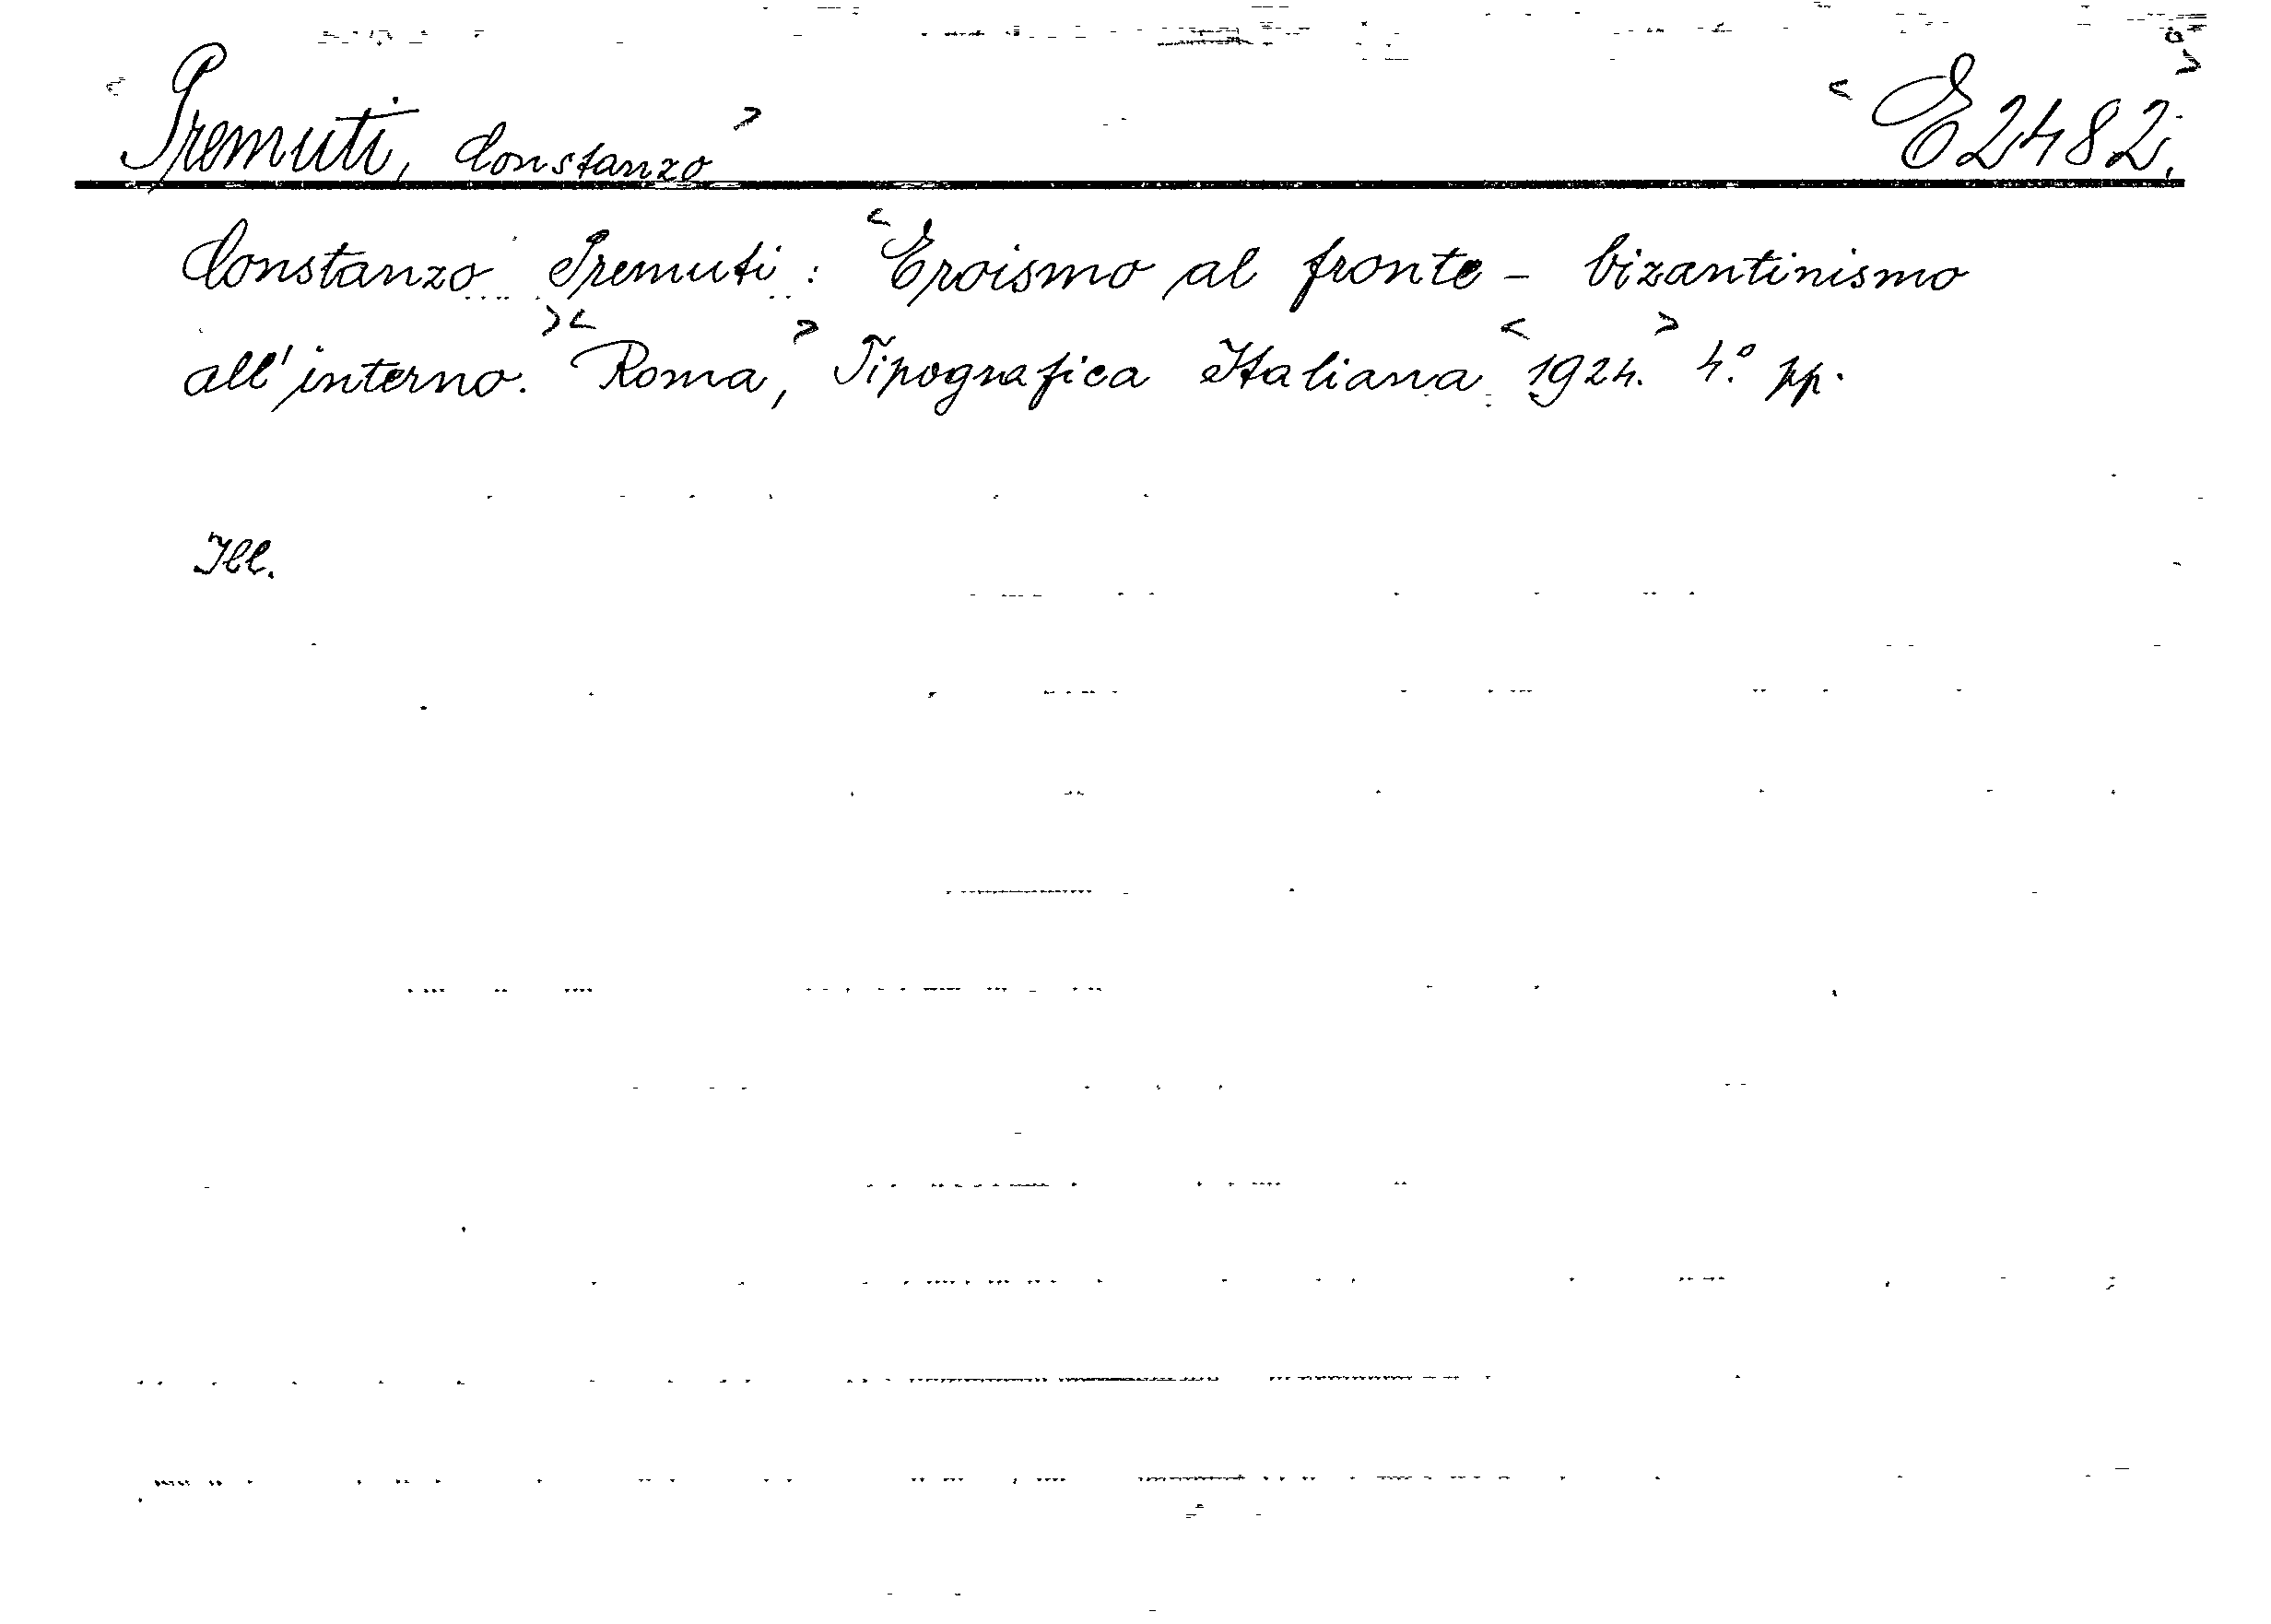 Premuti, Constanzo E2482.
Constanzo Premuti: Eroismo al fronte - bizantinismo
all'interno. Roma, Tipografica Italiana 1924. 4.° pp.
Ill.